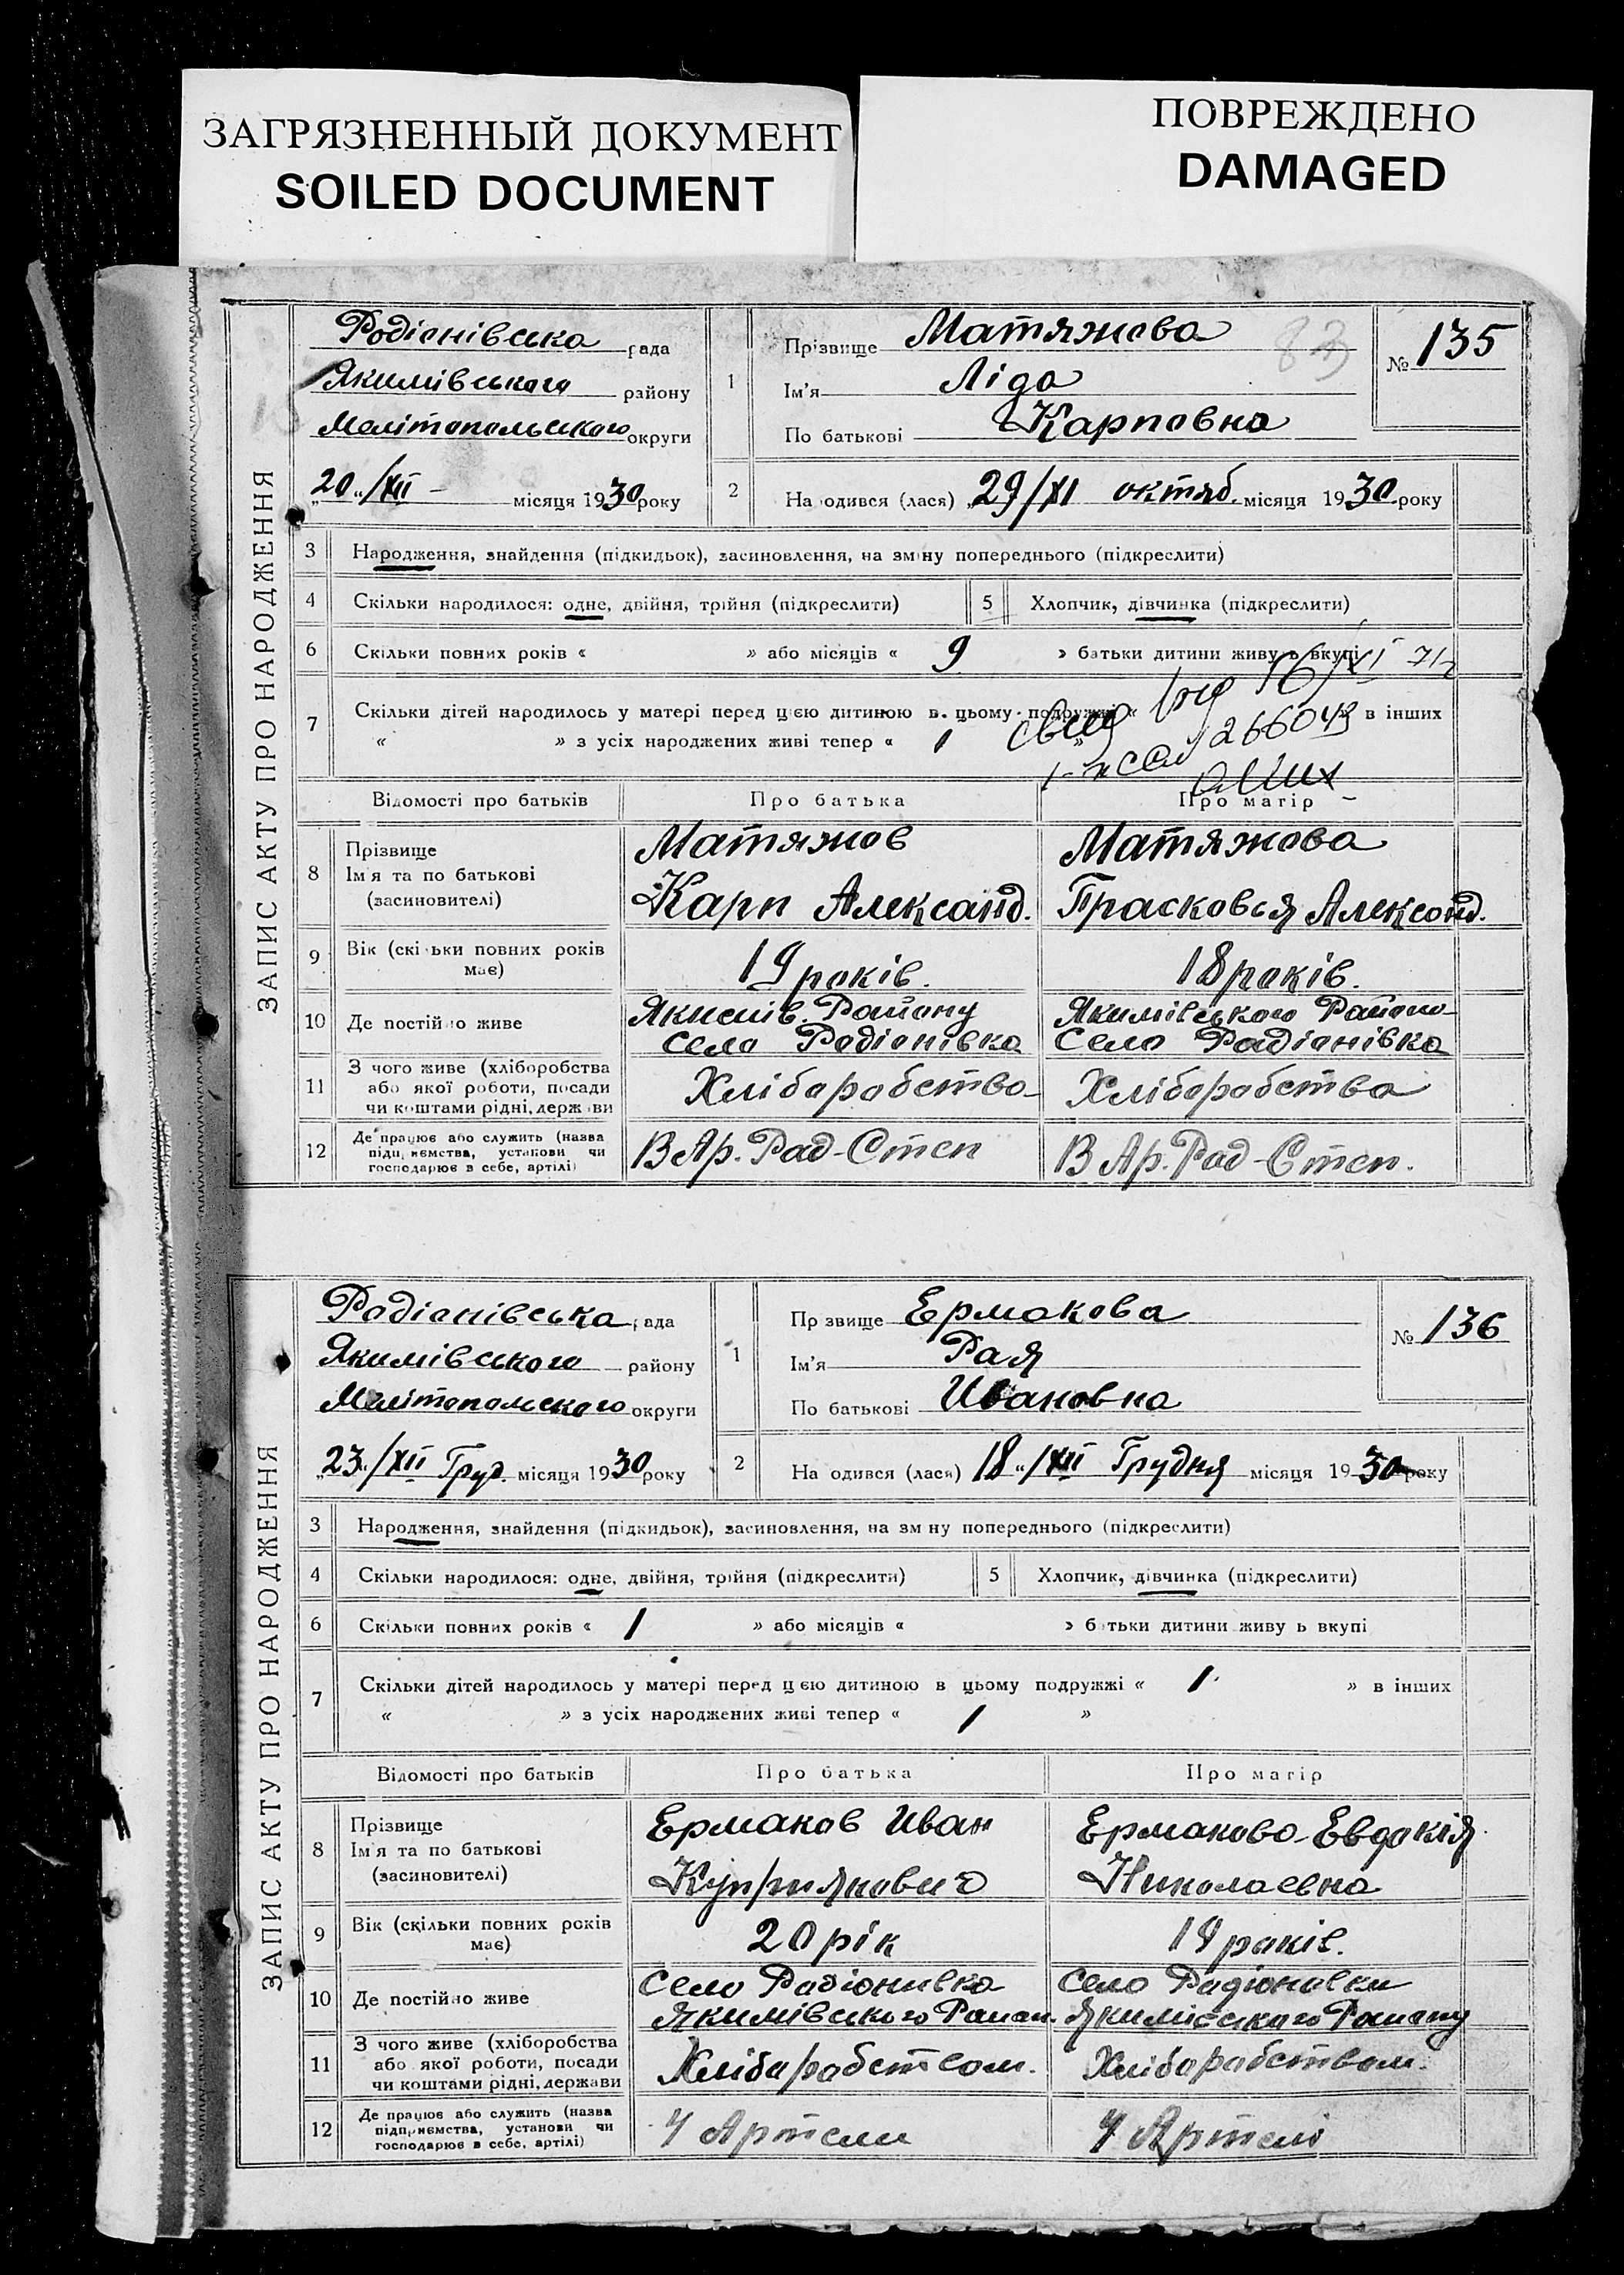 ЗАГРЯЗНЕННЫЙ ДОКУМЕНТ
SOILED DOCUMENT
ПОВРЕЖДЕНО
DAMAGED
ЗАПИС АКТУ ПРО НАРОДЖЕННЯ
Родіонівська рада
Якимівського району
Мелітопольського округи
„20„/XII – місяця 1930 року
1
Прізвище Матяжова
83
Ім'я Ліда
По батькові Карповна
№ 135
2
На одився (лася) „29/XI октяб. місяця 1930 року
3 Народження, знайдення (підкидьок), засиновлення, на зміну попереднього (підкреслити)
4 Скільки народилося: одне, двійня, трійня (підкреслити)
5 Хлопчик, дівчинка (підкреслити)
6 Скільки повних років « » або місяців « 9 » батьки дитини живуть вкупі
7 Скільки дітей народилось у матері перед цією дитиною в цьому подружжі « » в інших
« » з усіх народжених живі тепер « 1 »
16/XI 71
266043
Відомості про батьків
Про батька
Про матір
8 Прізвище
Ім'я та по батькові
(засиновителі)
Матяжов
Карп Александ.
Матяжова
Прасковья Александ.
9 Вік (скільки повних років
має)
19 років.
18 років.
10 Де постійно живе
Якимів. Району
село Родіонівка
Якимівського Району
Село Радіонівка
11 З чого живе (хліборобства
або якої роботи, посади
чи коштами рідні, держави
Хліборобство
Хліборобства
12 Де працює або служить (назва
підприємства, установи чи
господарює в себе, артілі)
В Ар. Рад-Степ
В Ар. Рад-Степ.
ЗАПИС АКТУ ПРО НАРОДЖЕННЯ
Радіонівська рада
Якимівського району
Мелітопольского округи
„23„/XII Груд. місяця 1930 року
1
Пр звище Ермакова
Ім'я Рая
По батькові Ивановна
№ 136
2
На одився (лася) 18„/XII Грудня місяця 1930 року
3 Народження, знайдення (підкидьок), засиновлення, на зм ну попереднього (підкреслити)
4 Скільки народилося: одне, двійня, трійня (підкреслити)
5 Хлопчик, дівчинка (підкреслити)
6 Скільки повних років « 1 » або місяців « » батьки дитини живу ь вкупі
7 Скільки дітей народилось у матері перед цією дитиною в цьому подружжі « 1 » в інших
« » з усіх народжених живі тепер « 1 »
Відомості про батьків
Про батька
Про матір
8 Прізвище
Ім'я та по батькові
(засиновителі)
Ермаков Иван
Куприянович
Ермакова Евдокія
Николаевна
9 Вік (скільки повних років
має)
20 рік
19 років.
10 Де постійно живе
Село Радіонивка
Якимівського Район.
Село Радіоновки
Якимівського Району
11 З чого живе (хліборобства
або якої роботи, посади
чи коштами рідні, держави
Хліборобством.
Хліборобством.
12 Де працює або служить (назва
підприємства, установи чи
господарює в себе, артілі)
У Артели
У Артелі